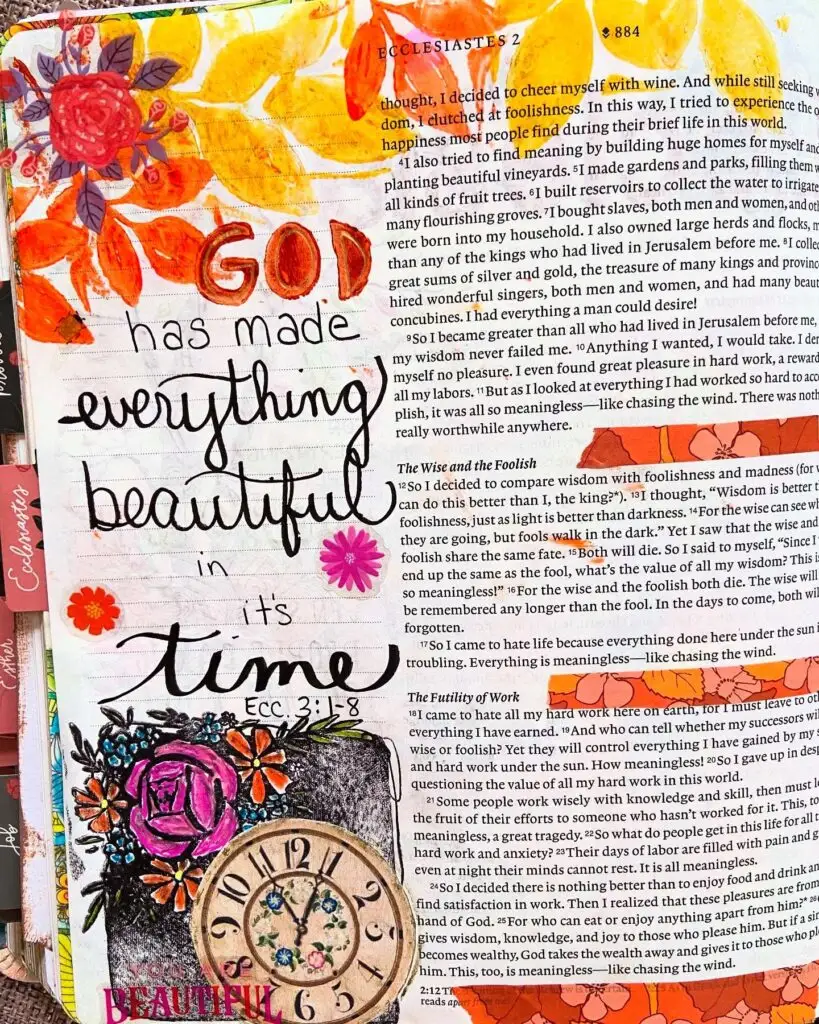 ECCLESIASTES 2
884
GOD
has made
everything
beautiful
in
it's
time
Ecc. 3:1-8
12
1
2
3
4
5
6
8
9
10
11
YOU ARE
BEAUTIFUL
Ecclesiastes
Esther
Job
thought, I decided to cheer myself with wine. And while still seeking
dom, I clutched at foolishness. In this way, I tried to experience the
happiness most people find during their brief life in this world.
4I also tried to find meaning by building huge homes for myself and
planting beautiful vineyards. 5I made gardens and parks, filling them
all kinds of fruit trees. 6I built reservoirs to collect the water to irrigate
many flourishing groves. 7I bought slaves, both men and women, and
were born into my household. I also owned large herds and flocks,
than any of the kings who had lived in Jerusalem before me. 8I
great sums of silver and gold, the treasure of many kings and
hired wonderful singers, both men and women, and had many
concubines. I had everything a man could desire!
9So I became greater than all who had lived in Jerusalem before me,
my wisdom never failed me. 10Anything I wanted, I would take. I
myself no pleasure. I even found great pleasure in hard work, a reward
all my labors. 11But as I looked at everything I had worked so hard to
plish, it was all so meaningless—like chasing the wind. There was
really worthwhile anywhere.
The Wise and the Foolish
12So I decided to compare wisdom with foolishness and madness (for
can do this better than I, the king?*). 13I thought, “Wisdom is better
foolishness, just as light is better than darkness. 14For the wise can see
they are going, but fools walk in the dark.” Yet I saw that the wise and
foolish share the same fate. 15Both will die. So I said to myself, “Since I
end up the same as the fool, what's the value of all my wisdom? This
so meaningless!” 16For the wise and the foolish both die. The wise will
be remembered any longer than the fool. In the days to come, both
forgotten.
17So I came to hate life because everything done here under the sun
troubling. Everything is meaningless—like chasing the wind.
The Futility of Work
18I came to hate all my hard work here on earth, for I must leave to
everything I have earned. 19And who can tell whether my successors
wise or foolish? Yet they will control everything I have gained by my
and hard work under the sun. How meaningless! 20So I gave up in
questioning the value of all my hard work in this world.
21Some people work wisely with knowledge and skill, then must
the fruit of their efforts to someone who hasn't worked for it. This,
meaningless, a great tragedy. 22So what do people get in this life for all
hard work and anxiety? 23Their days of labor are filled with pain and
even at night their minds cannot rest. It is all meaningless.
24So I decided there is nothing better than to enjoy food and drink
find satisfaction in work. Then I realized that these pleasures are from
hand of God. 25For who can eat or enjoy anything apart from him?*
gives wisdom, knowledge, and joy to those who please him. But if a
becomes wealthy, God takes the wealth away and gives it to those who
him. This, too, is meaningless—like chasing the wind.
2:12
reads apart from me?